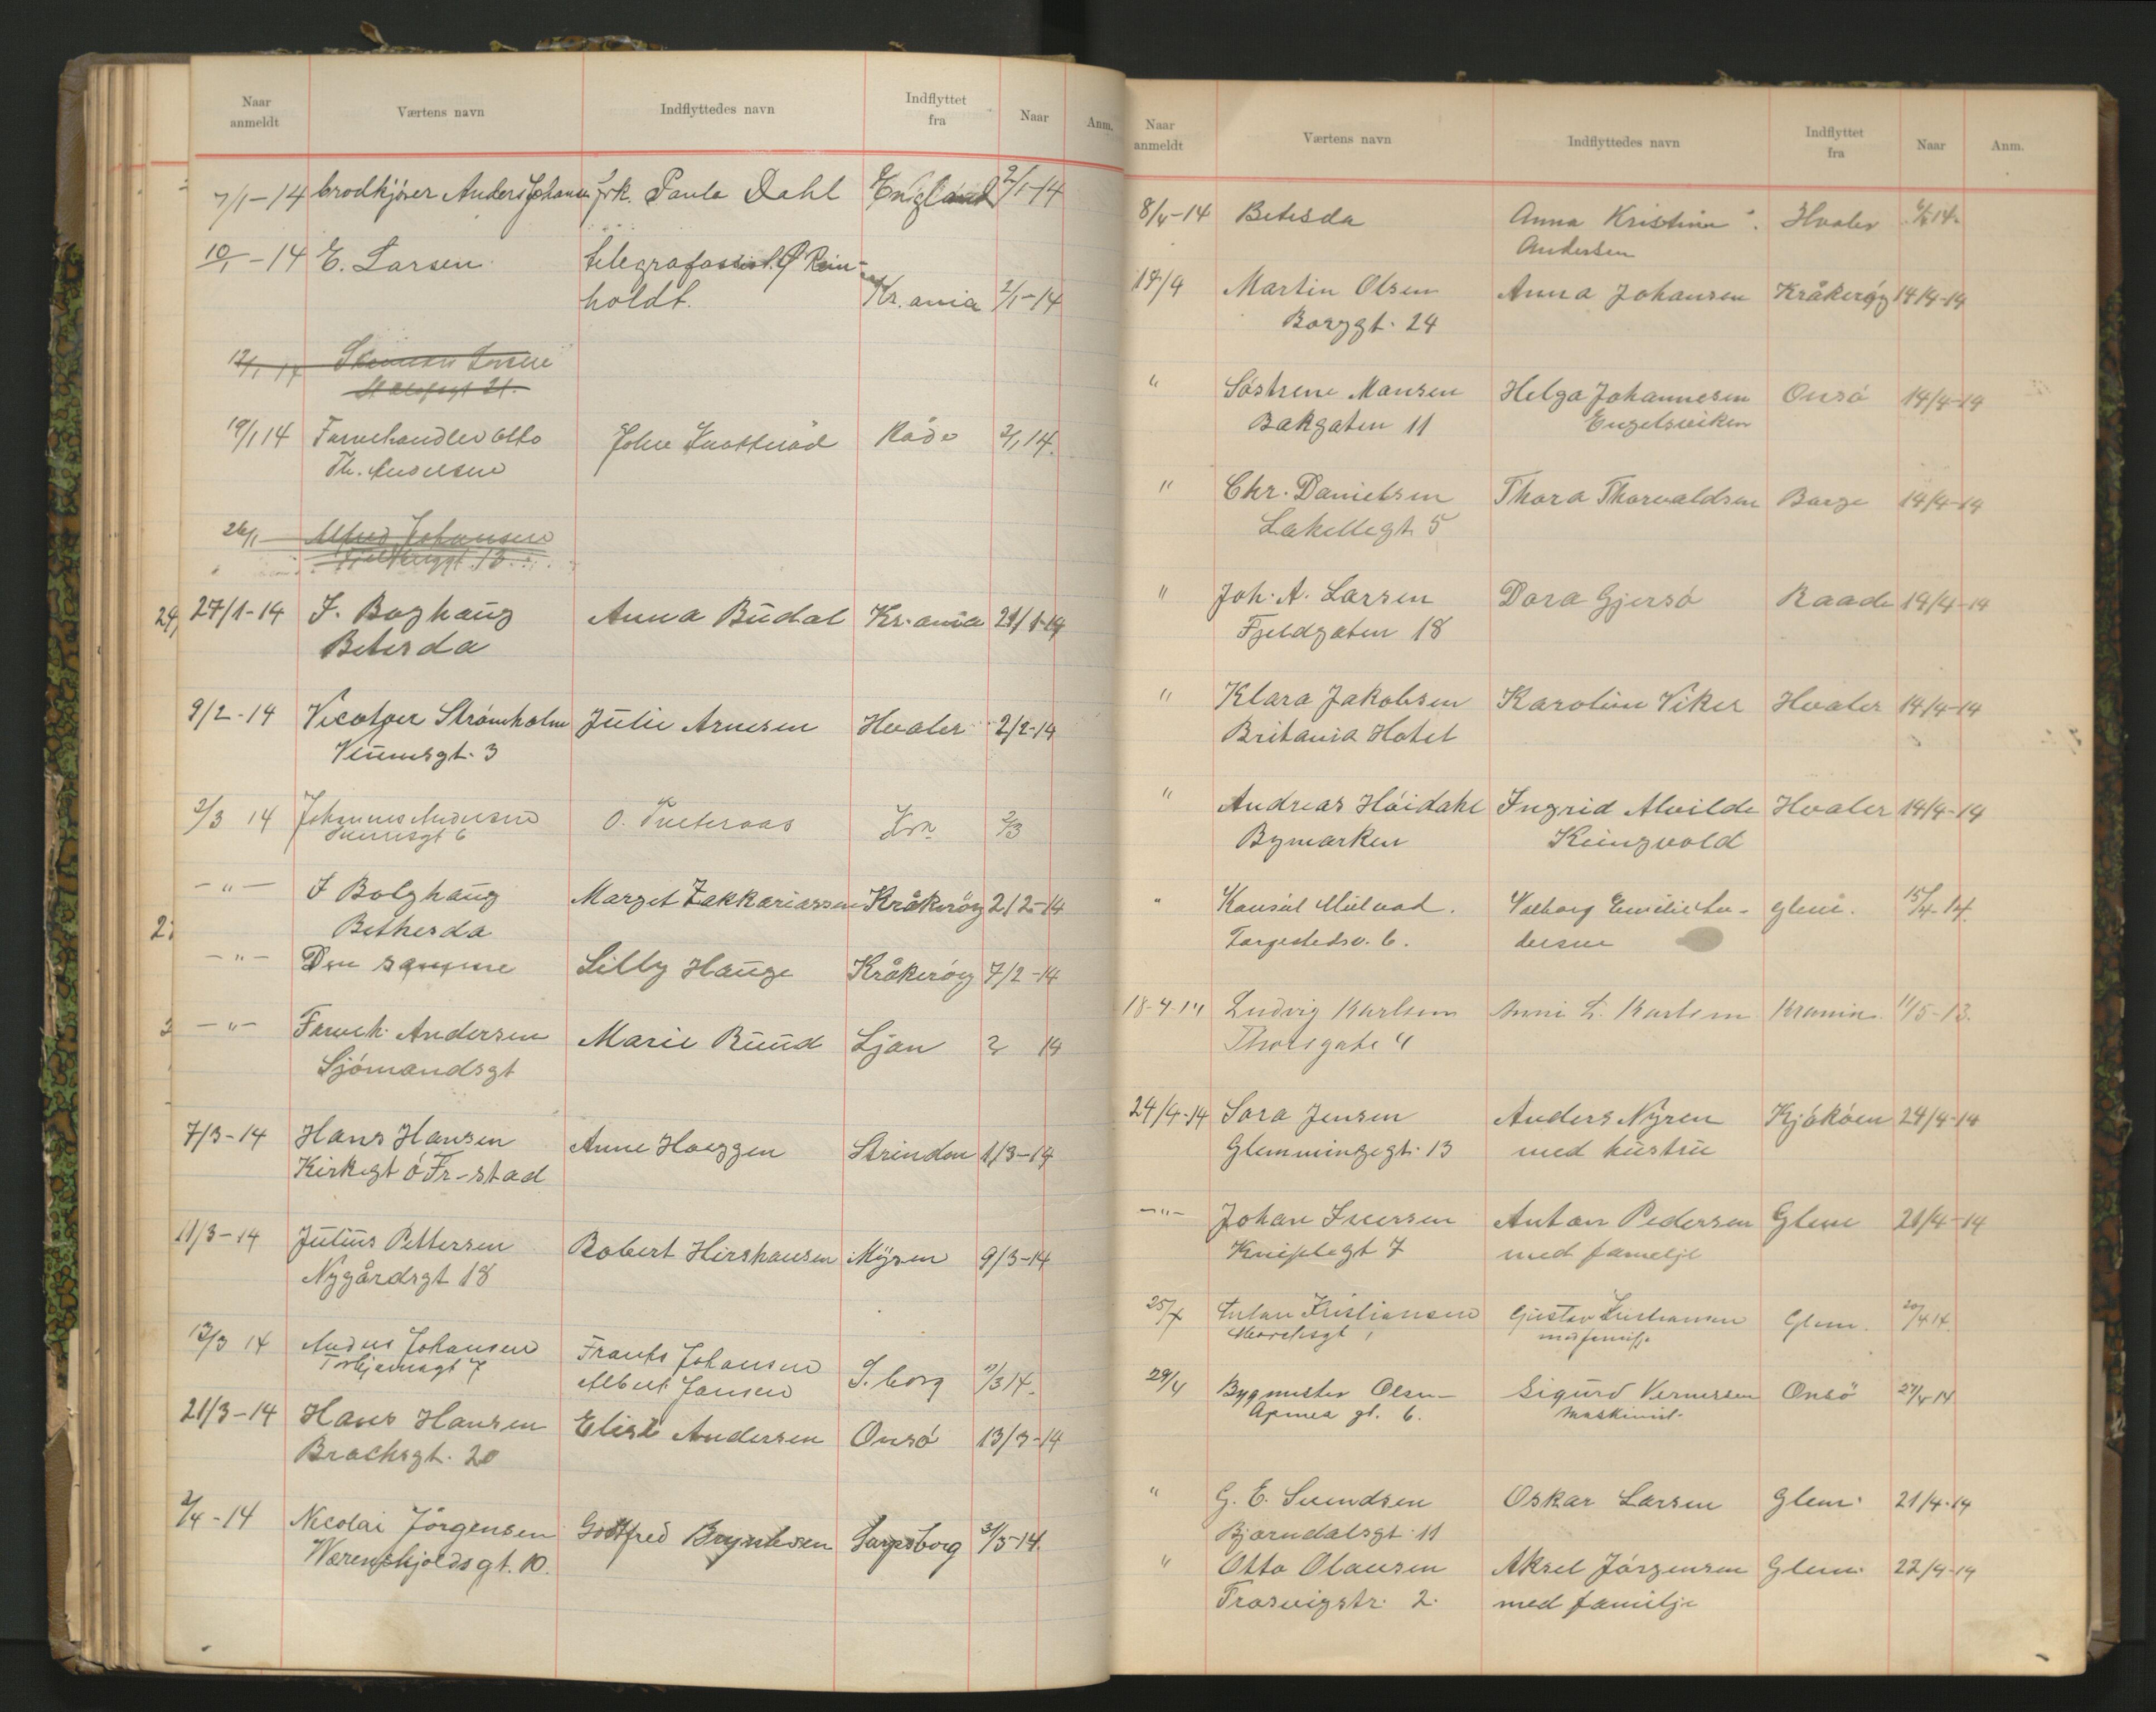 Naar anmeldt Værtens navn Indflyttedes navn Indflyttet fra Naar Anm.
7/1-14 brodkjører Anders Johansen frk. Paula Dahl England 2/1-14
10/1-14 E. Larsen telegrafassist. Rein-
holdt. Kr.ania 2/1-14
12/1 14
St Olafsgt 21.
19/1 14 Farvehandler Otto John Råde 2/1 14.
Th. Andersen
26/1 Alfred Johansen
13
27/1-14 J. Boghaug Anna Budal Kr.ania 21/1-14
Betesda
9/2-14 Strømholm Julie Arnesen Hvaler 2/2-14
3
2/3 14 Johannes Andersen O. 2/3
6
-"- J Bolghaug Marget Zakkariassen Kråkerøy 2/2-14
Bethesda
-"- Den samme Lilly Hauge Kråkerøy 7/2-14
-"- Farveh. Andersen Marie Ruud Ljan 2 14
Sjømandsgt
7/3-14 Hans Hansen Anne Hoeggen Strinden 1/3-14
Kirkegt ö Fr-stad
11/3-14 Julius Pettersen Robert Hirshausen Mysen 9/3-14
Nygårdsgt 18
13/3 14 Johansen Frants Johansen
7 Albert Jansen S.borg /3 14.
21/3-14 Hans Hansen Elise Andersen Onsø 13/3-14
Brochsgt. 20
2/4-14 Nicolai Jörgensen Godtfred Sarpsborg 31/3-14.
Værenskjoldsgt. 10.
Naar anmeldt Værtens navn Indflyttedes navn Indflyttet fra Naar Anm.
8/4-14 Betesda Anna Kristine Hvaler 14.
Andersen
17/4 Martin Olsen Anna Johansen Kråkerøy 14/4-14
Borggt. 24
" Søstrene Hansen Helga Johannesen Onsø 14/4-14
Bakgaten 11 Engelsviken
" Chr. Danielsen Thora Thorvaldsen Borge 14/4-14
Lakellegt. 5
" Joh. A. Larsen Dora Gjersø Raade 14/4-14
Fjeldgaten 18
" Klara Jakobsen Karoline Viker Hvaler 14/4-14
Britania Hotel
" Andreas Høidahl Ingrid Alvilde Hvaler 14/4-14
Bymarken Kungvold
" Konsul Valborg Emilie An- Glem. 15/4-14.
6. dersen
18-4-14 Ludvig Karlsen L. Karlsen 11/5-13.
Thorsgate 4
24/4-14 Sara Jensen Anders Nyren Kjøkøen 24/4-14
Glemmingegt. 13 med hustru
-"- Johan Iversen Anton Pedersen Glem 21/4-14
Kniplegt 7 med familje
25/4 Anton Kristiansen Gustav Kristiansen Glem. 20/4 14.
med familje
29/4 Bygmester Olsen Sigurd Vernersen Onsö 27/4 14
6. Maskinist.
" G. E. Svendsen Oskar Larsen Glem. 21/4-14
Bjørndalsgt. 11
" Otto Olausen Aksel Jørgensen Glem. 22/4-14
Trosvigstr. 2. med familje